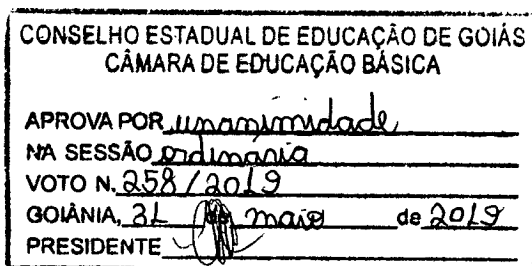 CONSELHO ESTADUAL DE EDUCAÇÃO DE GOIÁS
CÂMARA DE EDUCAÇÃO BÁSICA
APROVA POR unanimidade
NA SESSÃO ordinária
VOTO N. 258/2019
GOIÂNIA, 31 de maio de 2019
PRESIDENTE